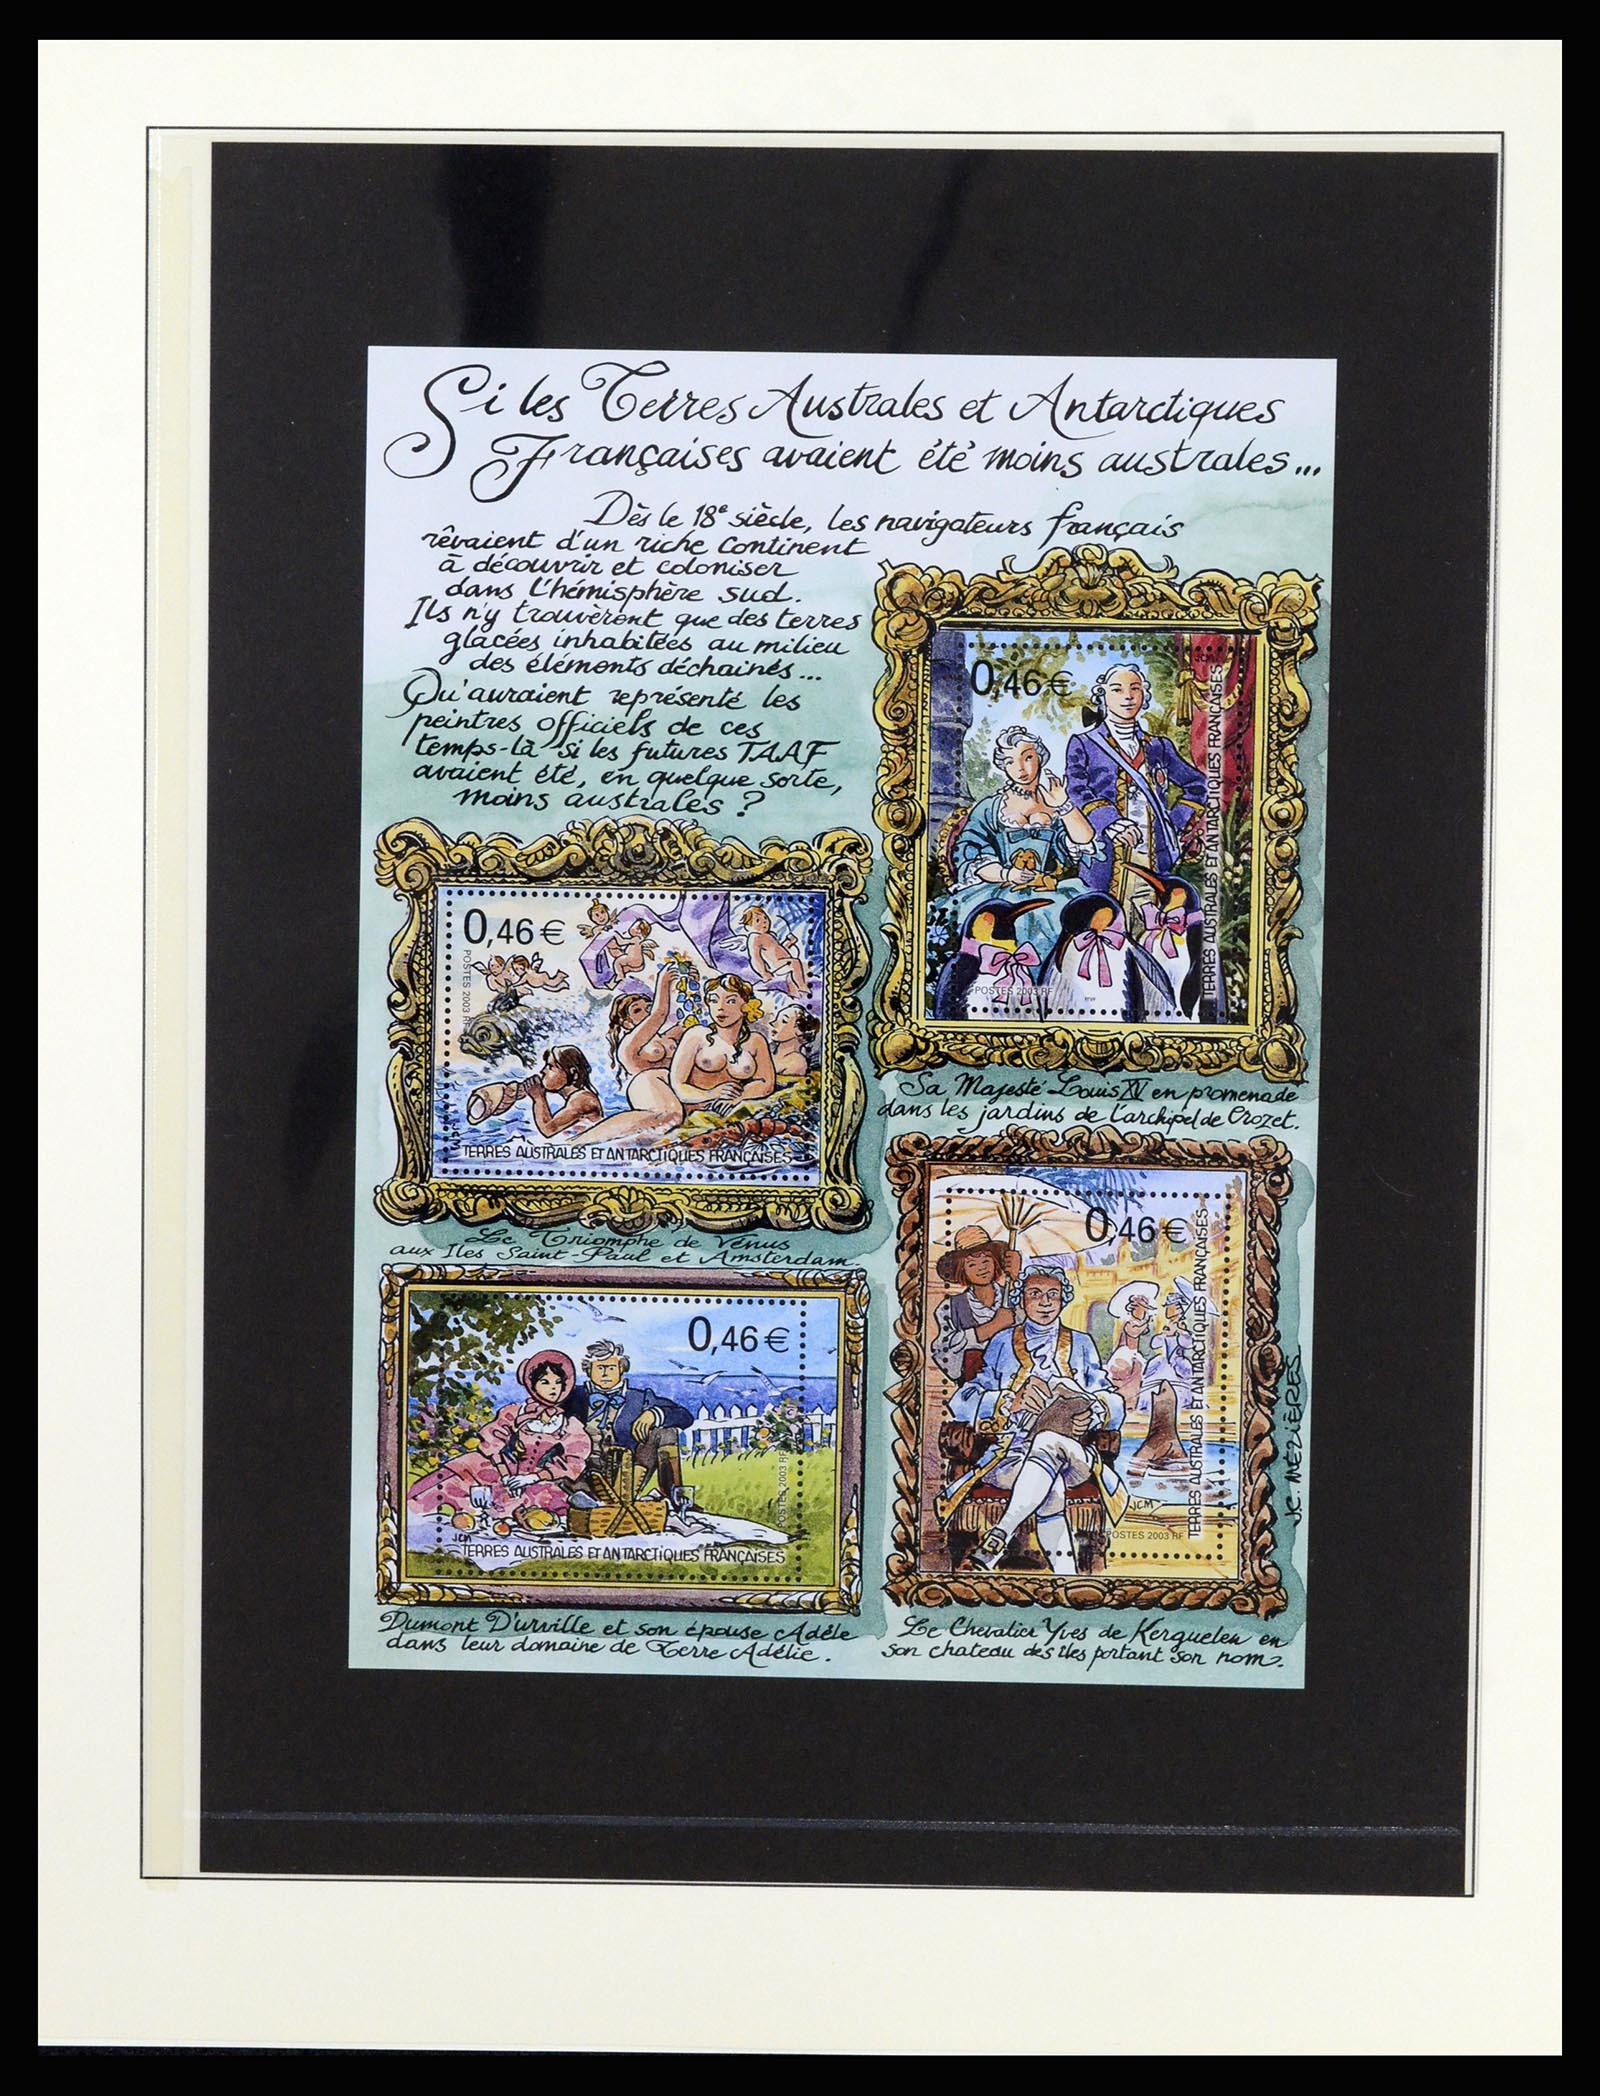 Si les Terres Australes et Antarctiques
Françaises avaient été moins australes...
Dès le 18e siècle, les navigateurs français
rêvaient d'un riche continent
à découvrir et coloniser
dans l'hémisphère sud.
Ils n'y trouvèrent que des terres
glacées inhabitées au milieu
des éléments déchainés...
Qu'auraient représenté les
peintres officiels de ces
temps-là si les futures TAAF
avaient été, en quelque sorte,
moins australes ?
JCM
0,46 €
TERRES AUSTRALES ET ANTARCTIQUES FRANÇAISES
POSTES 2003 RF
Sa Majesté Louis XV en promenade
dans les jardins de l'archipel de Crozet.
0,46 €
POSTES 2003 RF
JCM
TERRES AUSTRALES ET ANTARCTIQUES FRANÇAISES
Le Triomphe de Vénus
aux Iles Saint-Paul et Amsterdam.
0,46 €
POSTES 2003 RF
JCM
TERRES AUSTRALES ET ANTARCTIQUES FRANÇAISES
Dumont D'urville et son épouse Adèle
dans leur domaine de Terre Adélie.
0,46 €
TERRES AUSTRALES ET ANTARCTIQUES FRANÇAISES
JCM
POSTES 2003 RF
J.C. MÉZIÈRES
Le Chevalier Yves de Kerguelen en
son chateau des îles portant son nom.